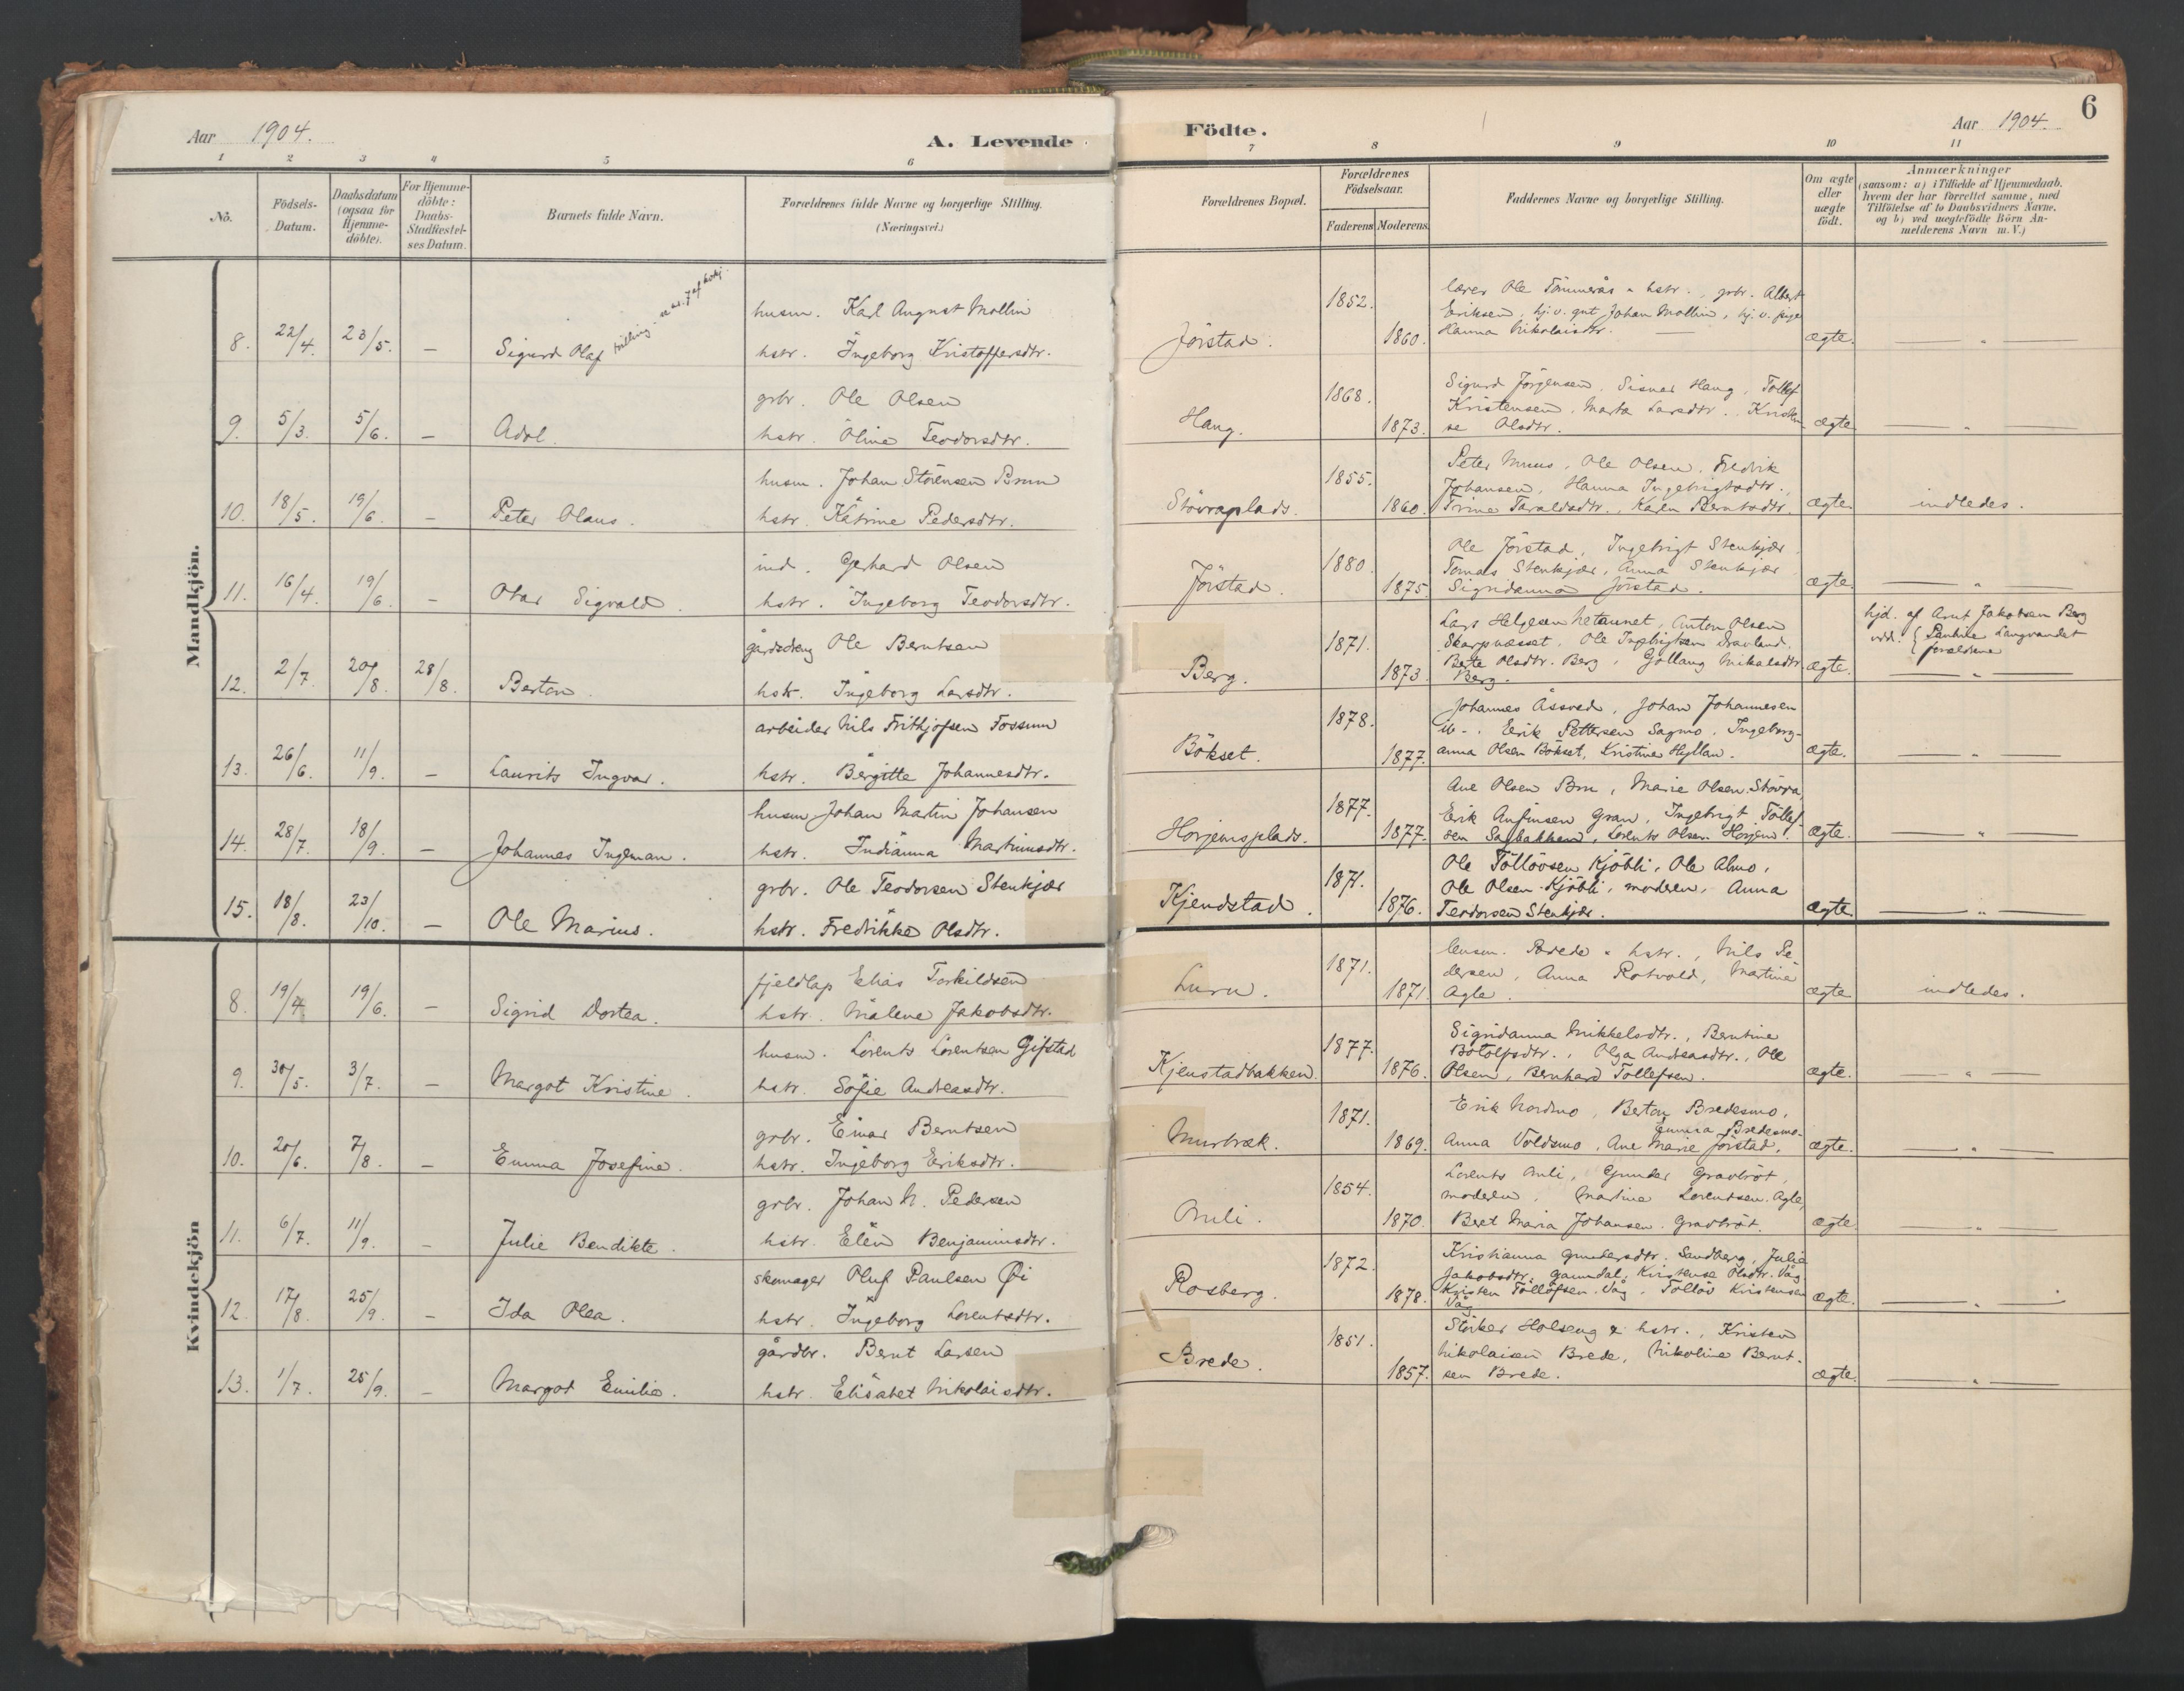 Aar 1904.
A. Levende
Födte.
Aar 1904.
6
1 2 3 4 5 6 7 8 9 10 11
No.
Födsels-Datum.
Daabsdatum (ogsaa for Hjemme-döbte).
For Hjemme-döbte: Daabs-Stadfæstel-ses Datum.
Barnets fulde Navn.
Forældrenes fulde Navne og borgerlige Stilling.
(Næringsvei.)
Forældrenes Bopæl.
Forældrenes Födselsaar.
Faderens Moderens
Faddernes Navne og borgerlige Stilling.
Om ægte eller uægte födt.
Anmærkninger
(saasom: a) i Tilfælde af Hjemmedaab,
hvem der har forrettet samme, med
Tilföielse af to Daabsvidners Navne,
og b) ved uægtefödte Börn An-
melderens Navn m. V.)
Mandkjön.
8. 22/4. 23/5. – Sigurd Olaf tvilling
husm. Karl August Mollin
hstr. Ingeborg Kristoffersdtr.
Jörstad. 1852. 1860.
lærer Ole Tömmerås & hstr., grbr. Albert
Eriksen, hj. v. gut Johan Mollin, hj. v. pige
Hanna Nikolaisdtr.
ægte. – " –
9. 5/3. 5/6. – Adol.
grbr. Ole Olsen
hstr. Oline Teodorsdtr.
Haug. 1868. 1873.
Sigurd Jörgensen, Haug, Tollef
Kristensen, Marta Larsdtr.,
se Olsdtr.
ægte – " –
10. 18/5. 19/6. – Peter Olaus.
husm. Johan Störensen Brun
hstr. Katrine Pedersdtr.
Stövraplads. 1855. 1860.
Peter Muus, Ole Olsen, Fredrik
Johansen, Hanna Ingebrigtsdtr.,
Trine Taraldsdtr., Karen Berntsdtr.
ægte indledes.
11. 16/4. 19/6. – Otar Sigvald.
ind. Gerhard Olsen
hstr. Ingeborg Teodorsdtr.
Jörstad. 1880. 1875.
Ole Jörstad, Ingebrigt Stenkjær,
Tomas Stenkjær, Anna Stenkjær
Sigridanna Jörstad.
ægte. – " –
12. 2/7. 20/8. 28/8. Berton.
gårdsdreng Ole Berntsen
hstr. Ingeborg Larsdtr.
Berg. 1871. 1873.
Lars Helgesen Anton Olsen
Skarpnæsset, Ole Ingebrigtsen
Berta Olsdtr. Berg, Gollaug Mikalsdtr.
Berg.
ægte.
hjd. af Arnt Jakobsen Berg
vdd. { Pauline Langvandet
forældrene
– " –
13. 26/6. 11/9. – Laurits Ingvar.
arbeider Nils Frithjofsen Fossum
hstr. Bergitte Johannesdtr.
Bökset. 1878. 1877.
Johannes Åsved, Johan Johannesen
ib., Eerik Pettersen Sagmo, Ingeborg-
anna Olsen Bökset, Kristine Hyllan.
ægte. – " –
14. 28/7. 18/9. – Johannes Ingeman.
husm. Johan Martin Johansen
hstr. Indianna Martinusdtr.
Horjemsplads. 1877. 1877.
Ane Olsen Bru, Marie Olsen Stövra,
Erik Anfinsen Gran, Ingebrigt Töllef-
sen Sagbakken, Lorents Olsen Horjem.
ægte. – " –
15. 18/8. 23/10. – Ole Marius.
grbr. Ole Teodorsen Stenkjær
hstr. Fredrikke Olsdtr.
Kjendstad. 1871. 1876.
Ole Töllövsen Kjöbli, Ole Almo,
Ole Olsen Kjöbli, moderen, Anna
Teodorsen Stenkjær.
ægte – " –
Kvindekjön
8. 19/4. 19/6. – Sigrid Dortea.
fjeldlap Elias Torkildsen
hstr. Malene Jakobsdtr.
Luru. 1871. 1871.
lensm. Brede & hstr., Nils Pe-
dersen, Anna Rotvold, Martine
Agle.
ægte indledes.
9. 30/5. 3/7. – Margot Kristine.
husm. Lorents Lorentsen Gifstad
hstr. Sofie Andreasdtr.
Kjenstadbakken. 1877. 1876.
Sigridanna Mikkelsdtr., Berntine
Botolfsdtr., Olga Andreasdtr., Ole
Olsen, Bernhard Tollefsen.
ægte. – " –
10. 20/6. 7/8. – Emma Josefine.
grbr. Einar Berntsen
hstr. Ingeborg Eriksdtr.
Murbræk. 1871. 1869.
Erik Nordmo, Berton Bredesmo,
Gunvra Bredesmo.
Anna Voldsmo, Ane Marie Jörstad.
ægte. – " –
11. 6/7. 11/9. – Julie Bendikte.
grbr. Johan N. Pedersen
hstr. Elen Benjaminsdtr.
Muli. 1854. 1870.
Lorents Muli, Gunder Gravbröt,
moderen, Martine Lorentsen Agle,
Beret Maria Johansen Gravbröt.
ægte. – " –
12. 17/8. 25/9. – Ida Olea.
skomager Oluf Paulsen Øi
hstr. Ingeborg Lorentsdtr.
Rosberg. 1872. 1878.
Kristianna Gundersdtr. Sandberg, Julie
Jakobsdtr. Gaundal, Kristense Olsdtr. Våg
Kristen Töllöfsen Våg, Töllöv Kristensen
Våg.
ægte. – " –
13. 1/7. 25/9. – Margot Emilie.
gårdbr. Bernt Larsen
hstr. Elisabet Nikolaisdtr.
Brede. 1851. 1857.
Störker Holseng & hstr., Kristen
Nikolaisen Brede, Nikoline Bernt-
sen Brede.
ægte. – " –